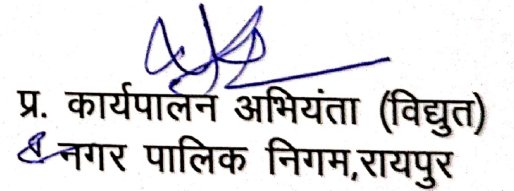 प्र. कार्यपालन अभियंता (विद्युत)
नगर पालिक निगम,रायपुर